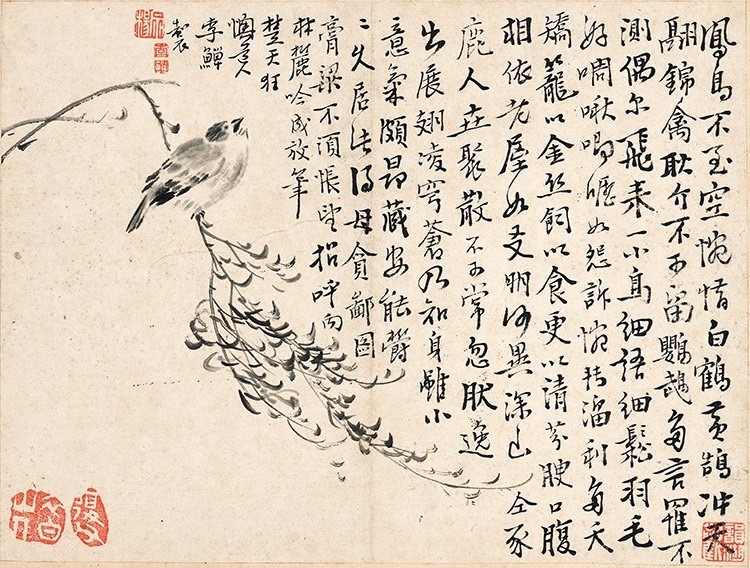 鳳鳥不至空惋惜白鶴黃鵠冲天
翮錦禽耿介不可留鸚鵡多言罹不
測偶尔飛来一小鳥細語細鬆羽毛
好啁啾唧嚦如怨訴惋轉溜利多夭
矯籠以金丝飼以食更以清芬腴口腹
相依老屋如友朋何異深山仝豕
鹿人生聚散不可常忽肰逸
出展翅凌穹蒼乃知身雖小
意氣頗昂藏安能鬱
二久居此得毋貪鄙圖
膏粱不須悵望招呼向
林麓吟成放筆
楚天狂
懊道人
李鱓
製